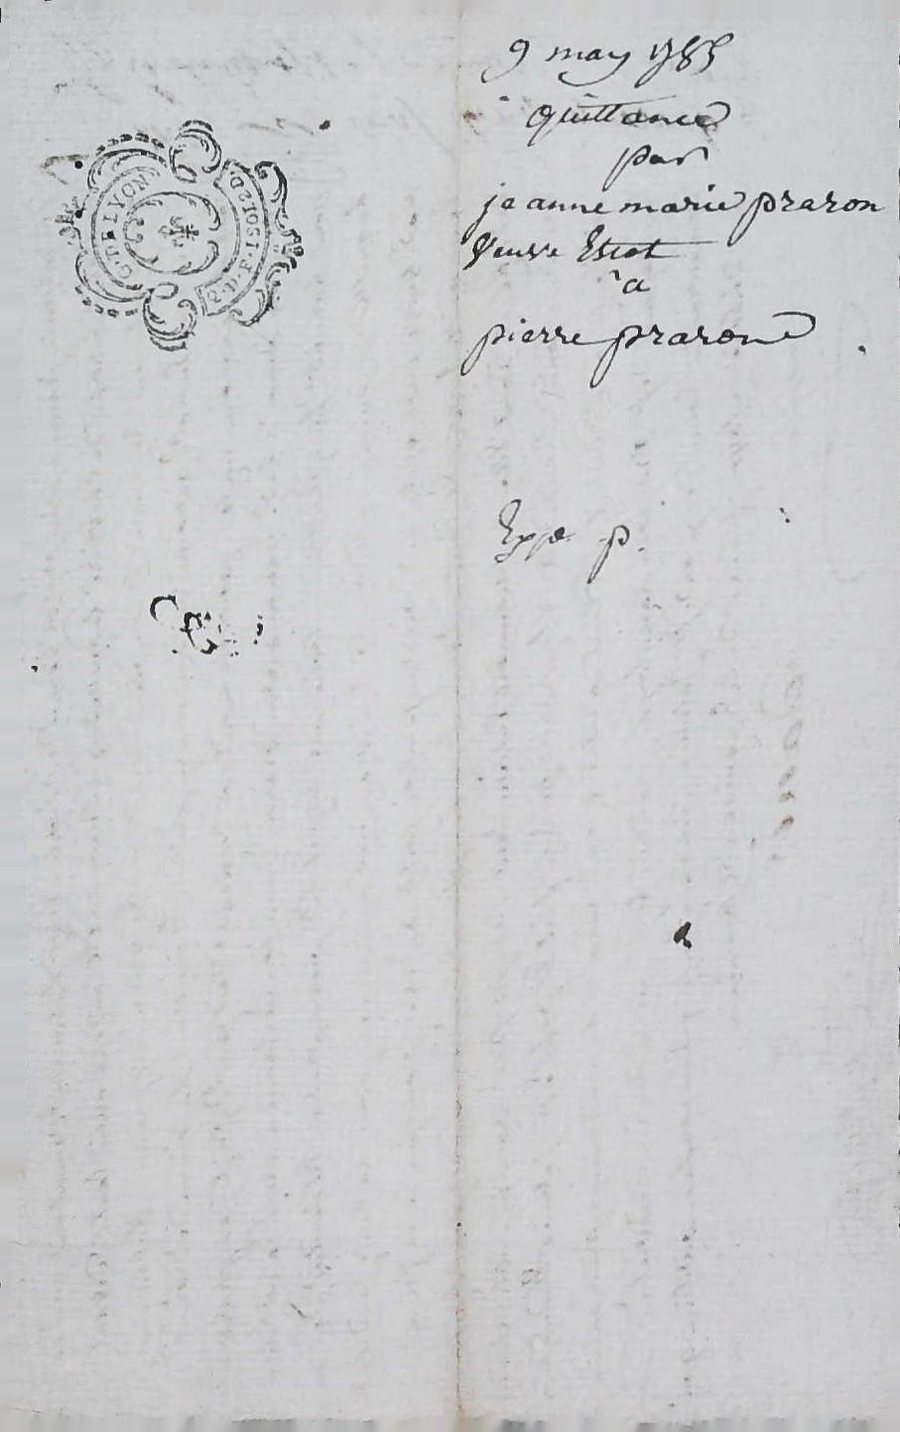 9 may 1785
quittance
par
jeanne marie praron
Veuve Estot
a
pierre praron
Exp. p.
G. DE LYON